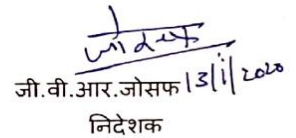 जोसफ
जी.वी.आर.जोसफ 13/1/2020
निदेशक